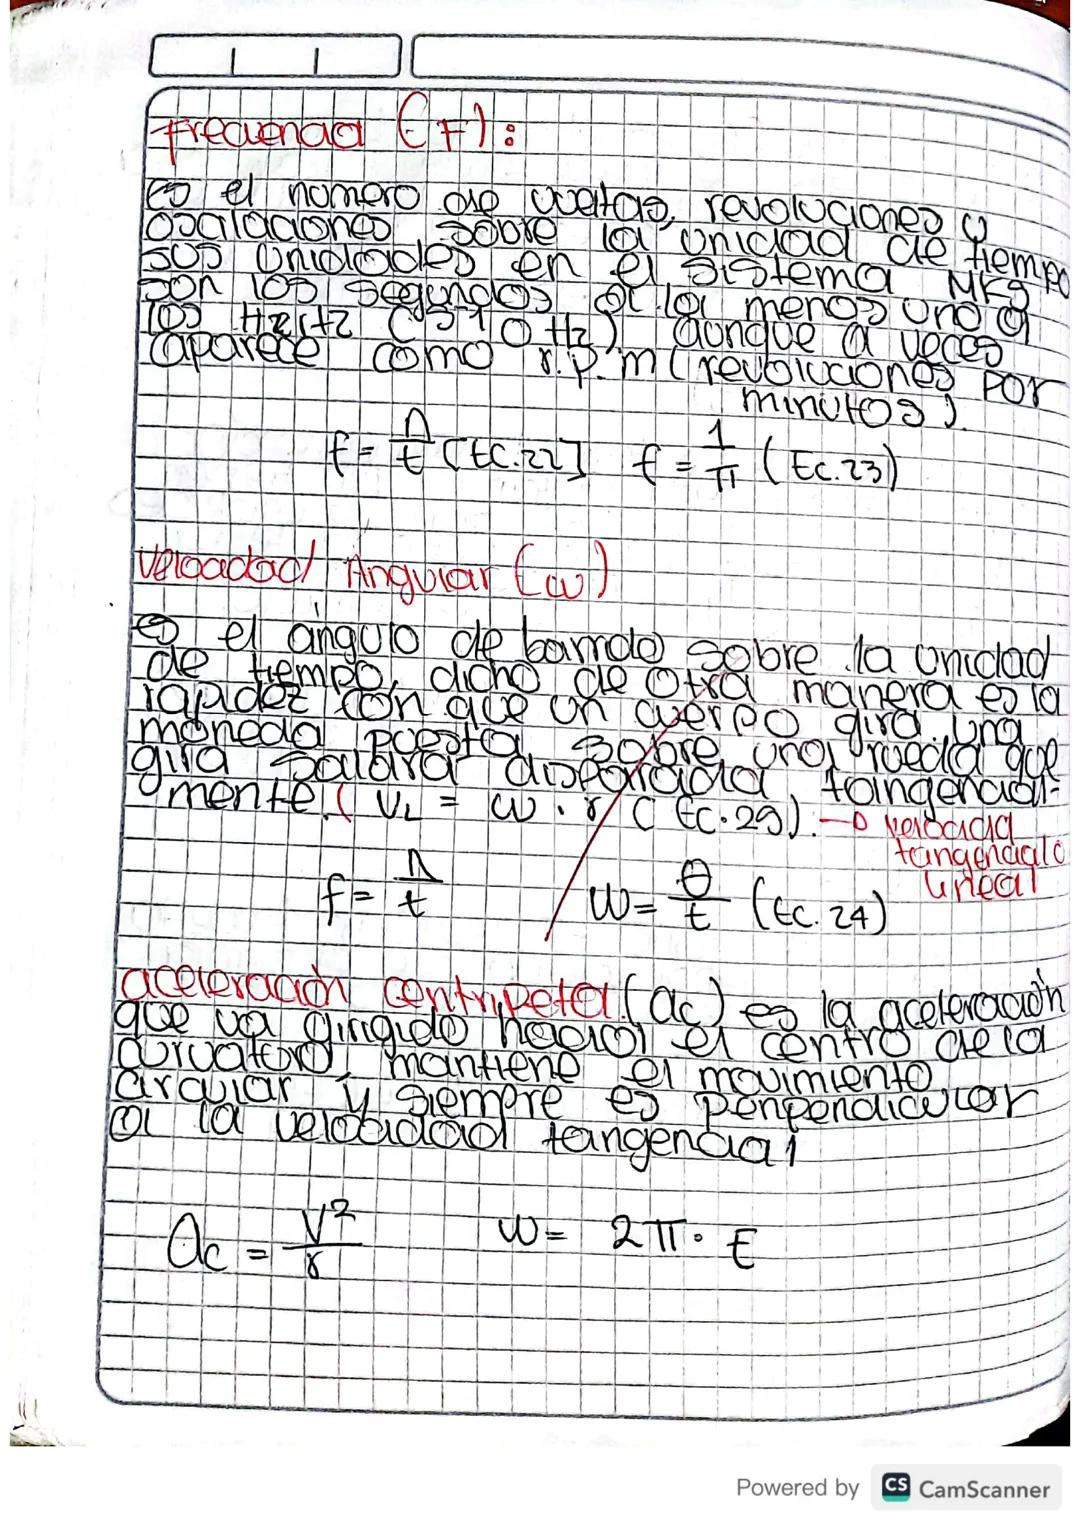 frecuencia (F):
es el número de vueltas, revoluciones y
oscilaciones sobre la unidad de tiempo
sus unidades en el sistema MKS
son los segundos a la menos uno o
los Hertz (s-1 o Hz) aunque a veces
aparece como r.p.m (revoluciones por
minutos).
f = n/t [Ec.22] f = 1/π (Ec.23)
Velocidad Angular (w)
es el ángulo de barrido sobre la unidad
de tiempo, dicho de otra manera es la
rapidez con que un cuerpo gira. una
moneda puesta sobre una rueda que
gira saldrá disparada tangencial-
mente. ( VL = w . r ( Ec.29). → velocidad
tangencial o
lineal
f = n/t w = θ/t (Ec. 24)
aceleración centripeta (ac) es la aceleración
que va dirigido hacia el centro de la
curvatura, mantiene el movimiento
circular y siempre es perpendicular
a la velocidad tangencial
ac = V²/r w = 2π · F
Powered by CS CamScanner